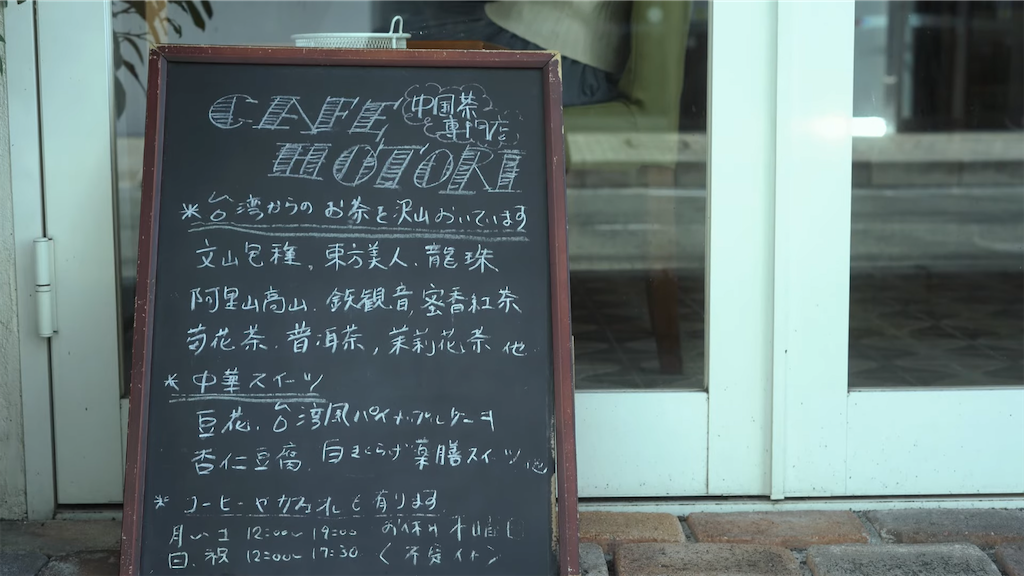 CAFE
中国茶
専門店
HOTORI
*台湾からのお茶を沢山おいています
文山包種、東方美人、龍珠
阿里山高山、鉄観音、蜜香紅茶
菊花茶、普洱茶、茉莉花茶 他
*中華スイーツ
豆花、台湾風パイナップルケーキ
杏仁豆腐、白きくらげ薬膳スイーツ 他
*コーヒーやカフェオレも有ります
12:00~19:00 お休み 木曜日
日・祝 12:00~17:30 く不定